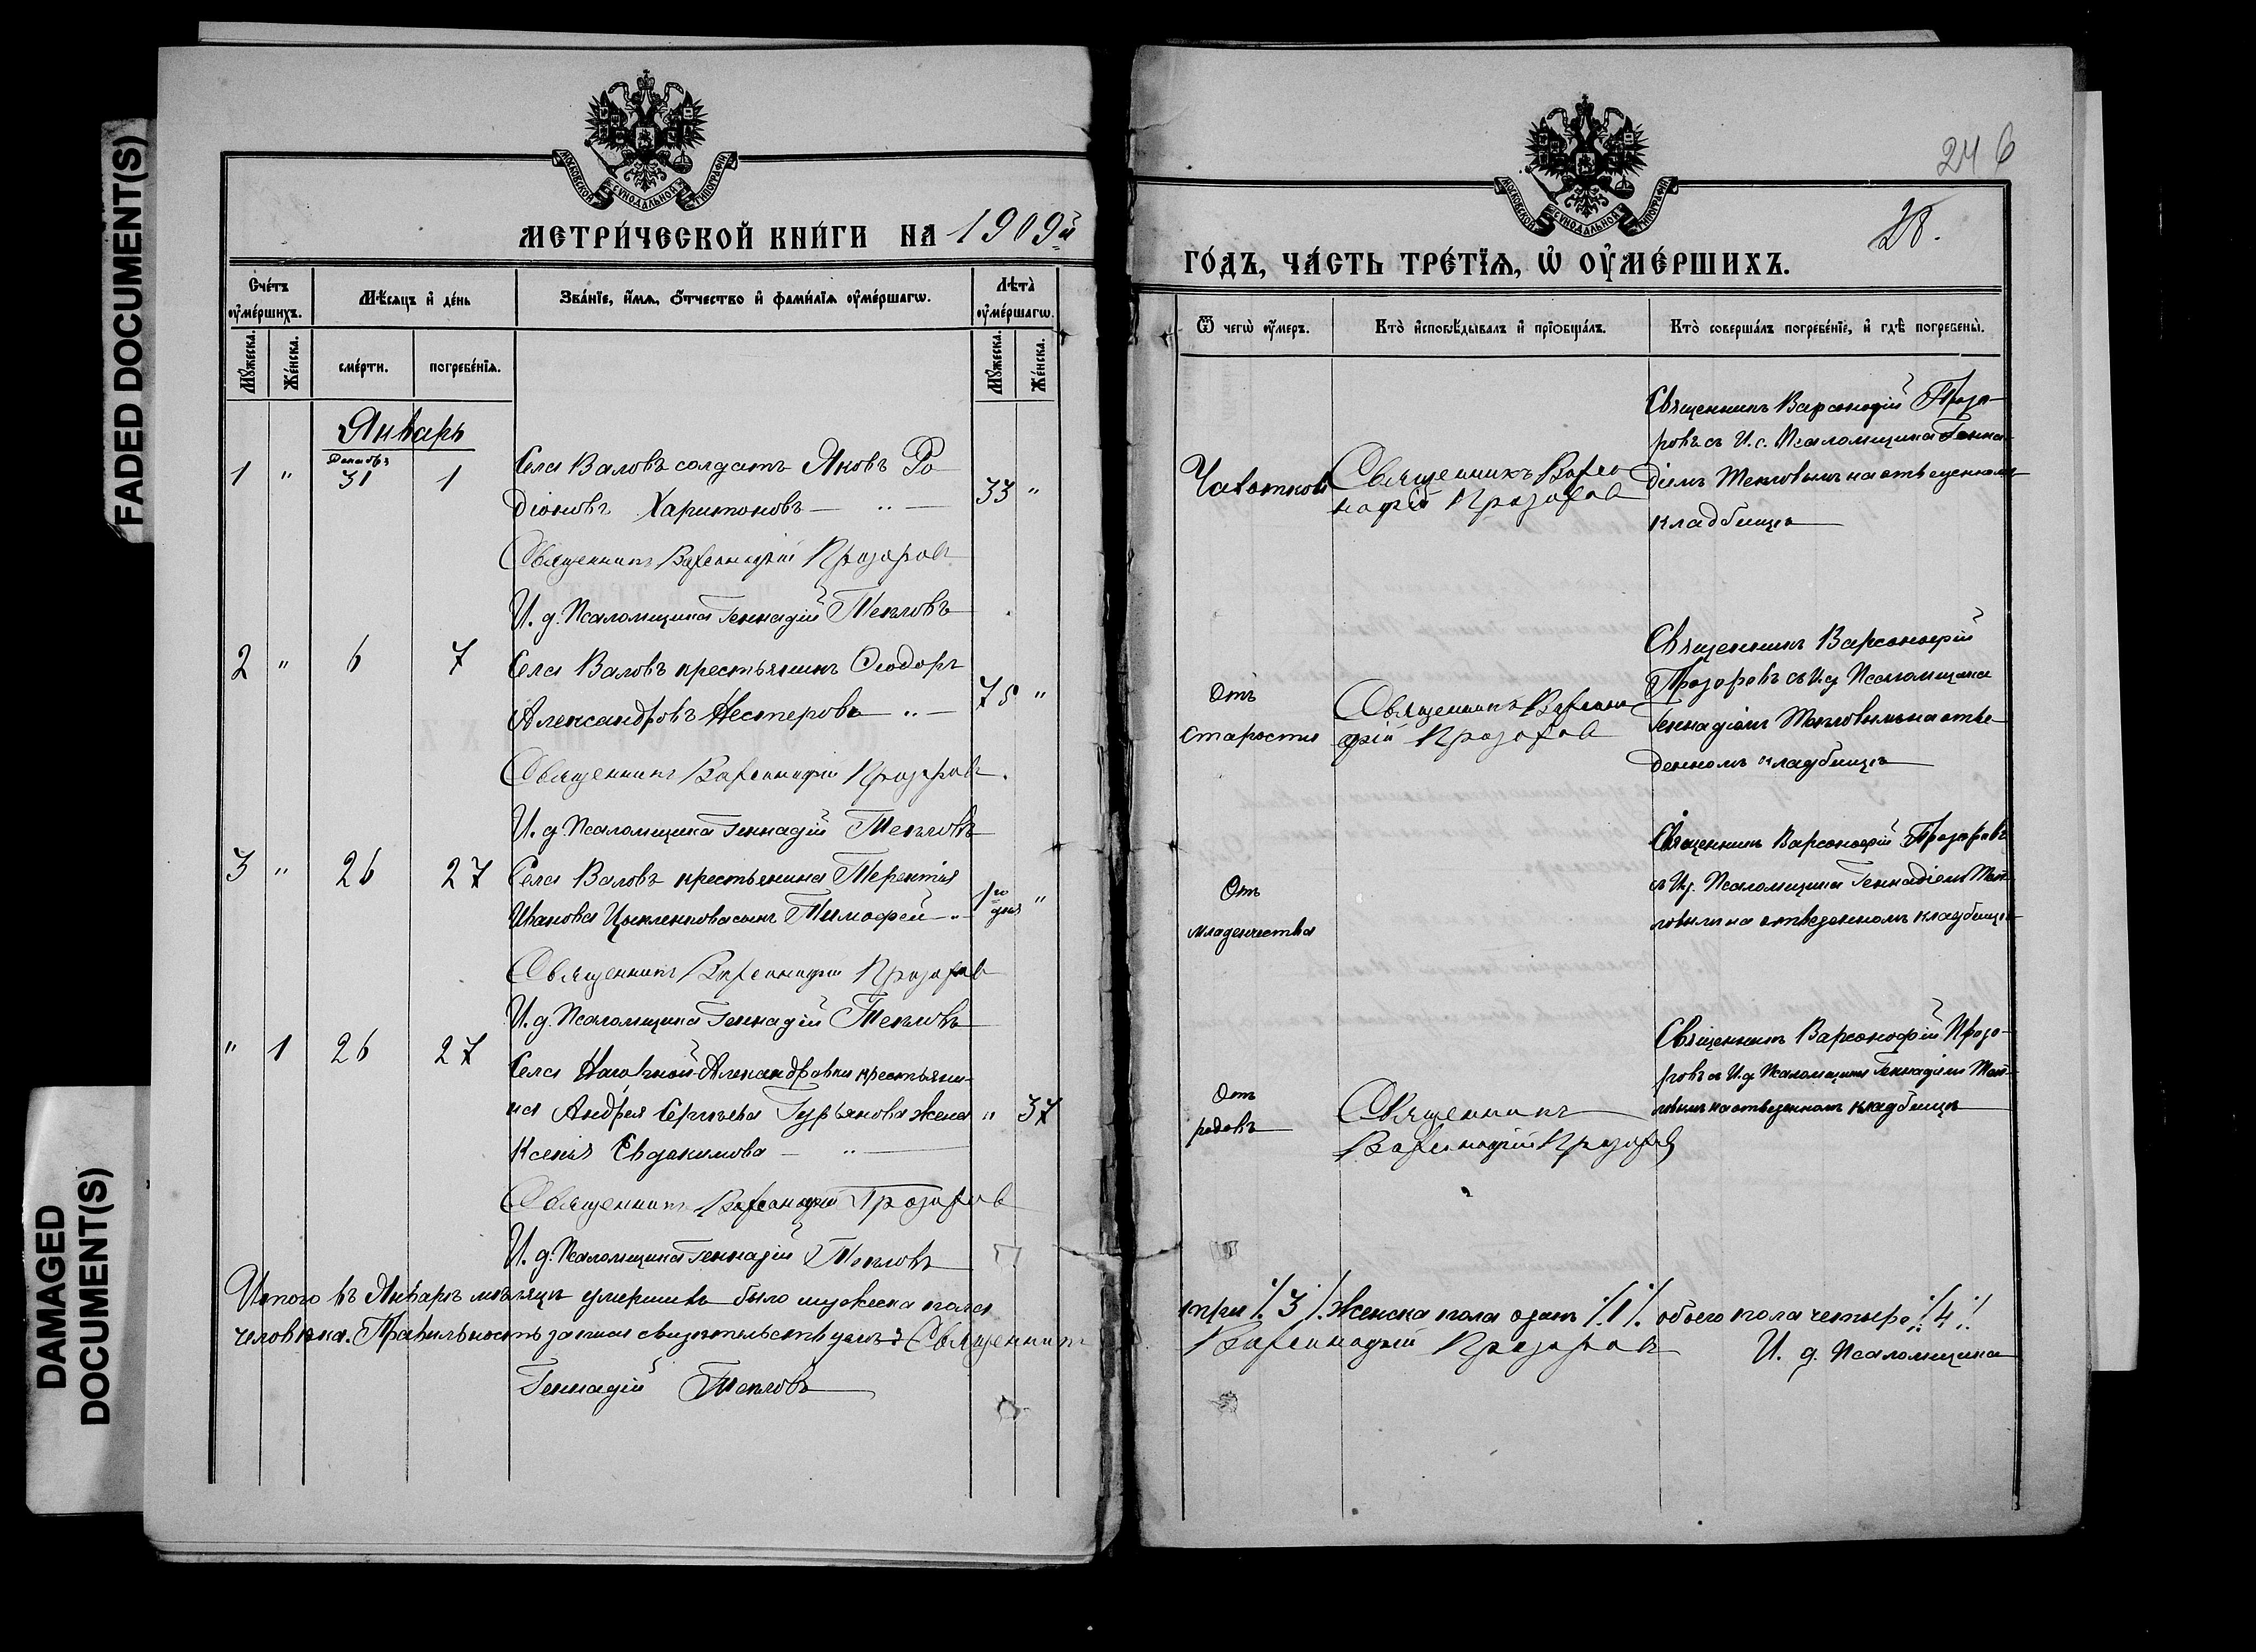 FADED DOCUMENT(S)
DAMAGED
DOCUMENT(S)
МОСКОВСКОЙ СѴНОДАЛЬНОЙ ТИПОГРАФІИ
МЕТРИ́ЧЕСКОЙ КНИ́ГИ НА 1909й
Сче́тъ ѹ҆ме́ршихъ.
Мѣ́сяцъ и҆ де́нь
Зва́нїе, и҆́мѧ, ѻ҆́тчество и҆ фами́лїѧ ѹ҆ме́ршагѡ.
Лѣ́та ѹ҆ме́ршагѡ.
Мꙋ́жеска.
Же́нска.
сме́рти.
погребе́нїѧ.
Мꙋ́жеска.
Же́нска.
Январь
Декабрь
1 " 31 1 Села Валовъ солдатъ Яковъ Ро
діоновъ Харитоновъ — " — 33 "
Священникъ Варсонофій Прозоровъ
И. д. Псаломщика Геннадій Тепловъ
2 " 6 7 Села Валовъ крестьянинъ Ѳеодоръ
Александровъ Нестеровъ " — 75 "
Священникъ Варсонофій Прозоровъ.
И. д. Псаломщика Геннадій Тепловъ
3 " 26 27 Села Валовъ крестьянина Терентія
Иванова сынъ Тимофей " — 1го дня "
Священникъ Варсонофій Прозоровъ
И. д. Псаломщика Геннадій Тепловъ
" 1 26 27
Села Александровки крестьяни-
на Андрея Сергѣева Гурьянова жена " 37
Ксенія Евдокимова — " —
Священникъ Варсонофій Прозоровъ
И. д. Псаломщика Геннадій Тепловъ
Итого въ Январѣ мѣсяцѣ умершихъ было мужеска пола
человѣка. Правильность записи свидѣтельствуемъ: Священникъ
Геннадій Тепловъ
246
28.
МОСКОВСКОЙ СѴНОДАЛЬНОЙ ТИПОГРАФІИ
ГО́ДЪ, ЧА́СТЬ ТРЕ́ТЇѦ, Ѡ҆ ОУ҆МЕ́РШИХЪ.
Ѿ чегѡ̀ ѹ҆́меръ.
Кто̀ и҆сповѣ́дывалъ и҆ прїѡбща́лъ.
Кто̀ соверша́лъ погребе́нїе, и҆ гдѣ̀ погребены̀.
Чахотки
Священникъ Варсо
нофій Прозоровъ
Священникъ Варсонофій Прозо-
ровъ съ И. с. Псаломщика Генна-
діемъ Тепловымъ на отведенномъ
кладбищѣ
Отъ
старости
Священникъ Варсоно
фій Прозоровъ
Священникъ Варсонофій
Прозоровъ съ И.д. Псаломщика
Геннадіемъ Тепловымъ на отве-
денномъ кладбищѣ
Отъ
младенчества
Священникъ Варсонофій Прозоровъ
съ И.д. Псаломщика Геннадіемъ Теп-
ловымъ на отведенномъ кладбищѣ
Отъ
родовъ
Священникъ
Варсонофій Прозоровъ
Священникъ Варсонофій Прозо-
ровъ съ И.д. Псаломщика Геннадіемъ Теп-
ловымъ на отведенномъ кладбищѣ
три ./. 3 ./. Женска пола одинъ ./. 1 ./. обоего пола четыре ./. 4 ./.
Варсонофій Прозоровъ И. д. Псаломщика